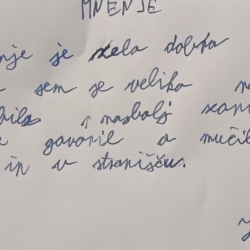 MNENJE
nje je zelo dobra
sem se veliko
bila najbolj zani
govoril a mučil
in v stranišču.